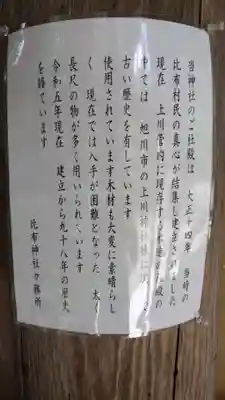 当神社のご社殿は 大正十四年 当時の
比布村民の真心が結集し建立されました
現在 上川管内に現存する木造社殿の
中では 旭川市の上川神社に次ぐ
古い歴史を有しています
使用されています木材も大変に素晴らし
く 現在では入手が困難となった 太く
長尺の物が多く用いられています
令和五年現在 建立から九十八年の歴史
を誇ています
比布神社社務所